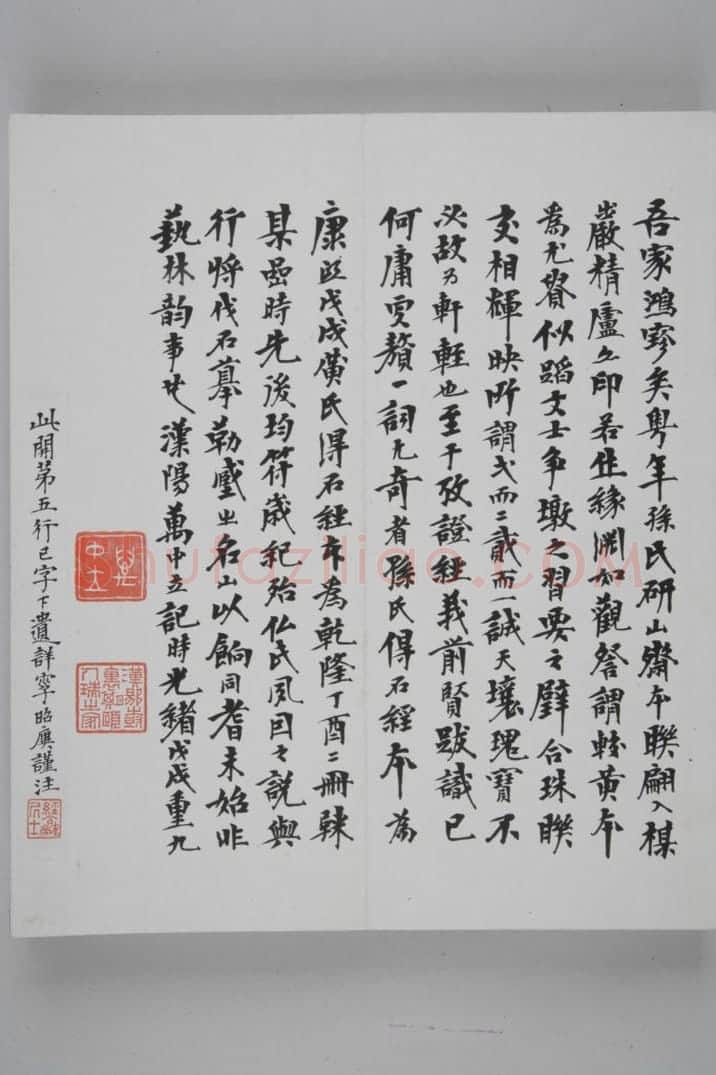 吾家鴻寶矣粵年孫氏研山齋本聯翩入楳
嚴精廬各印若佳緣淵如觀詧謂較黃本
為尤賢似蹈文士爭墩之習要之璧合珠聯
交相輝映所謂弍而二貳而一誠天壤瑰寶不
必故乃軒輊也至于攷證經義前賢跋識已
何庸更贅一詞尤奇者孫氏得石經本為
康熙戊戌黃氏得石經本為乾隆丁酉二冊隸
某嵒時先後均符歲紀殆仏氏風因之說與
行將伐石摹勒龕之名山以餉同耆未始非
藝林韵事也漢陽萬中立記時光緒戊戌重九
此開第五行已字下遺詳字昭度謹注
萬
中立
shufaziliao.COM